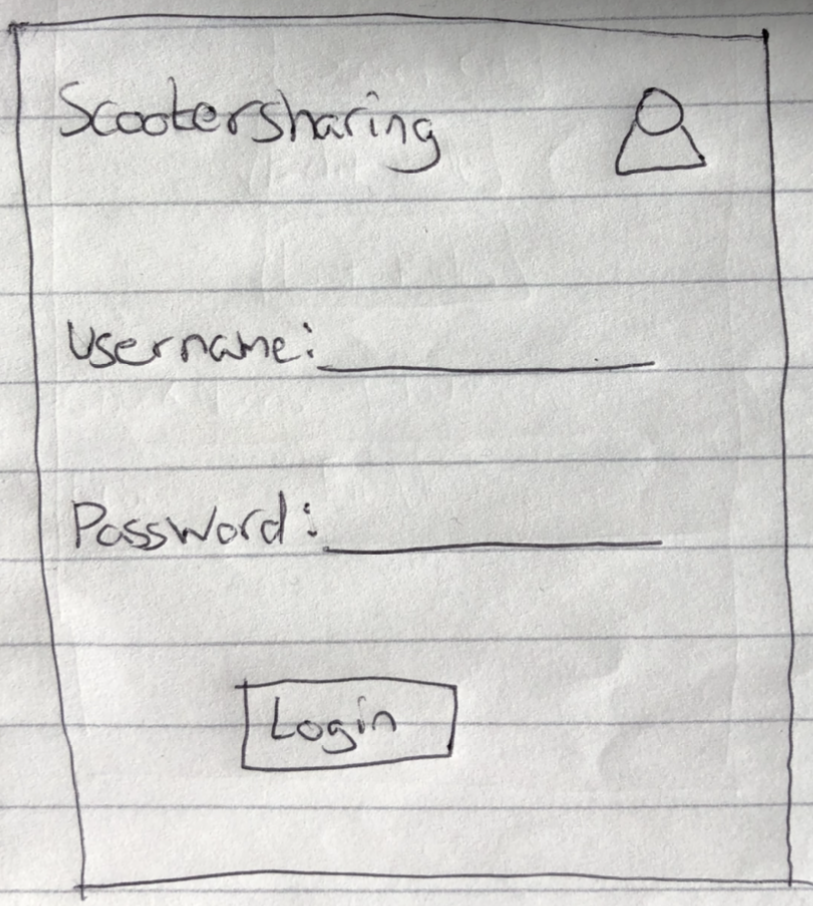 Scootersharing
Username:
Password:
Login